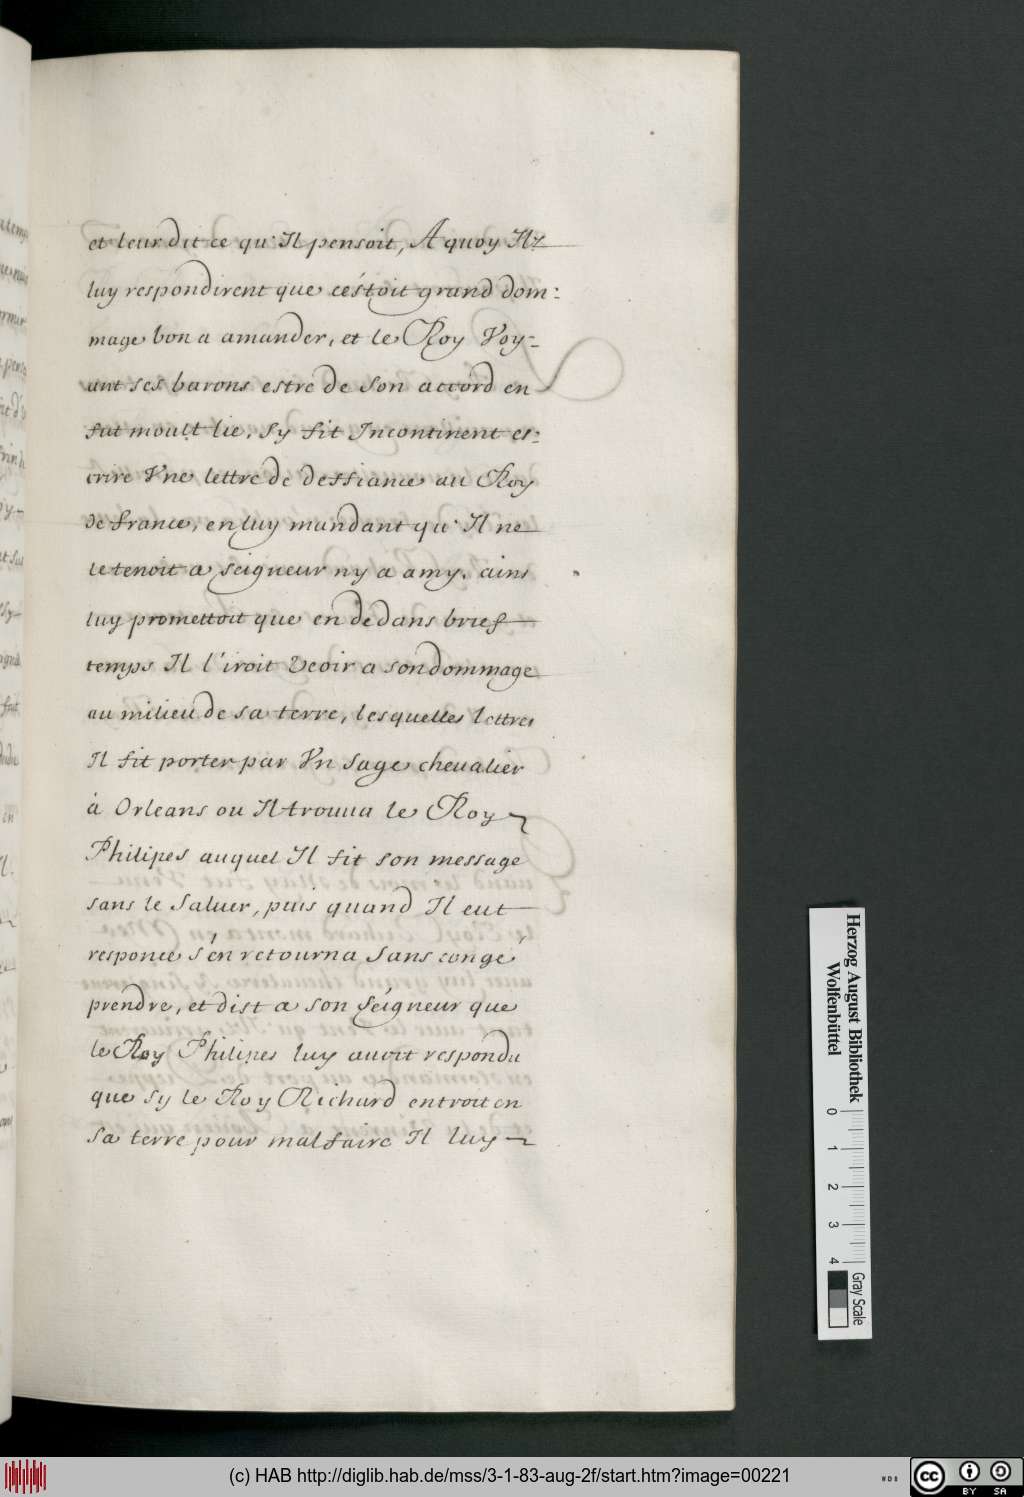 et leur dit ce qu'Il pensoit, A quoy Ilz
luy respondirent que c'estoit grand dom:
mage bon a amander, et le Roy Voy-
ant ses barons estre de son accord en
fut moult lie, sy fit Incontinent es:
crire Vne lettre de deffiance au Roy
de france, en luy mandant qu'Il ne
le tenoit a seigneur ny a amy. ains
luy promettoit que en dedans brief
temps Il l'iroit veoir a son dommage
au milieu de sa terre, lesquelles lettres
Il fit porter par Vn sage cheualier
à Orleans ou Il trouua le Roy
Philipes auquel Il fit son message
sans le saluer, puis quand Il eut
responce s'en retourna sans congé
prendre, et dist a son seigneur que
le Roy Philipes luy auoit respondu
que sy le Roy Richard entroit en
sa terre pour mal faire Il luy
Herzog August Bibliothek
Wolfenbüttel
0 1 2 3 4
Gray Scale
(c) HAB http://diglib.hab.de/mss/3-1-83-aug-2f/start.htm?image=00221
cc BY SA